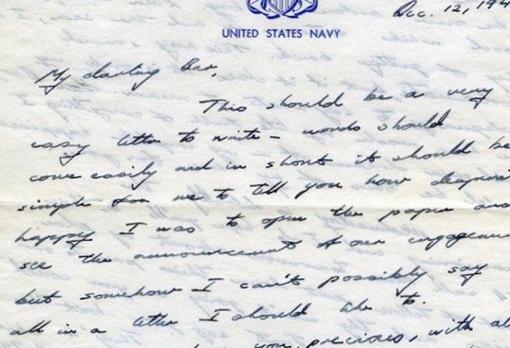 Dec. 12, 194
UNITED STATES NAVY
My darling
This should be a very
easy letter to write – words should
come easily and in short it should be
simple for me to tell you how desperat
happy I was to open the paper and
see the announcement of our engageme
but somehow I can't possibly say
all in a letter I should like to.
you, precious, with al